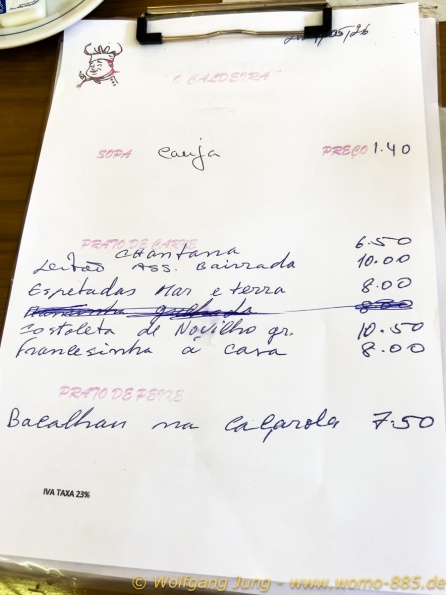 O CALDEIRA
SOPA Canja PREÇO 1.40
PRATO DE CARNE
Chanfana 6.50
Leitão Ass. Bairrada 10.00
Espetadas Mar e terra 8.00
8.00
Costoleta de Novilho gr. 10.50
Francesinha à casa 8.00
PRATO DE PEIXE
Bacalhau na Caçarola 7.50
IVA TAXA 23%
© Wolfgang Jung - www.womo-885.de